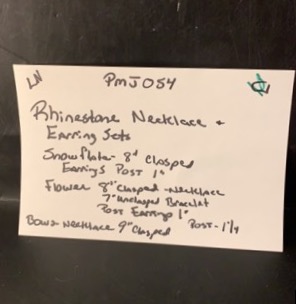 LN PMJ054
Rhinestone Necklace +
Earring Sets
Snowflake 8" Clasped
Earrings Post 1"
Flower 8" Clasped - Necklace
7" Unclasped Bracelet
Post Earrings 1"
Bows - Necklace 9" Clasped Post - 1 1/4